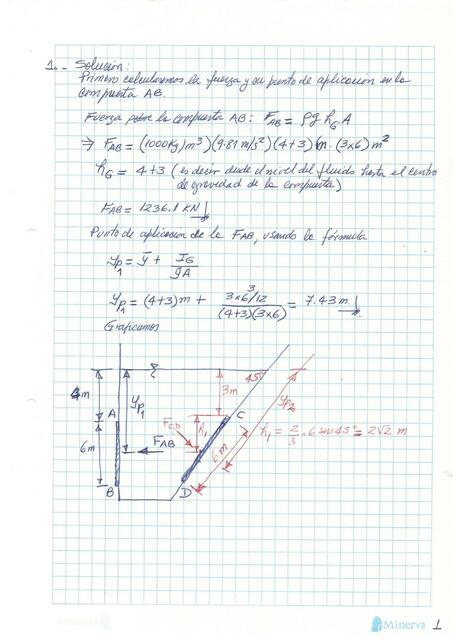 1.- Solución:
Primero calcularemos la fuerza y su punto de aplicación en la
compuerta AB.
Fuerza sobre la compuerta AB: F_AB = ρg h_G A
⇒ F_AB = (1000 Kg/m³)(9.81 m/s²)(4+3)m · (3x6) m²
h_G = 4+3 (es decir desde el nivel del fluido hasta el centro
de gravedad de la compuerta)
F_AB = 1236.1 KN
Punto de aplicación de la F_AB, usando la fórmula
y_p1 = ȳ + I_G / ȳA
y_p1 = (4+3)m + (3x6³/12) / ((4+3)(3x6)) = 7.43 m
Graficamos
4m
A
y_p1
6m
F_AB
B
D
3m
45°
C
F_CD
h_1
6m
y_p2
h_1 = 2/3 · 6 sen 45° = 2√2 m
Minerva
1